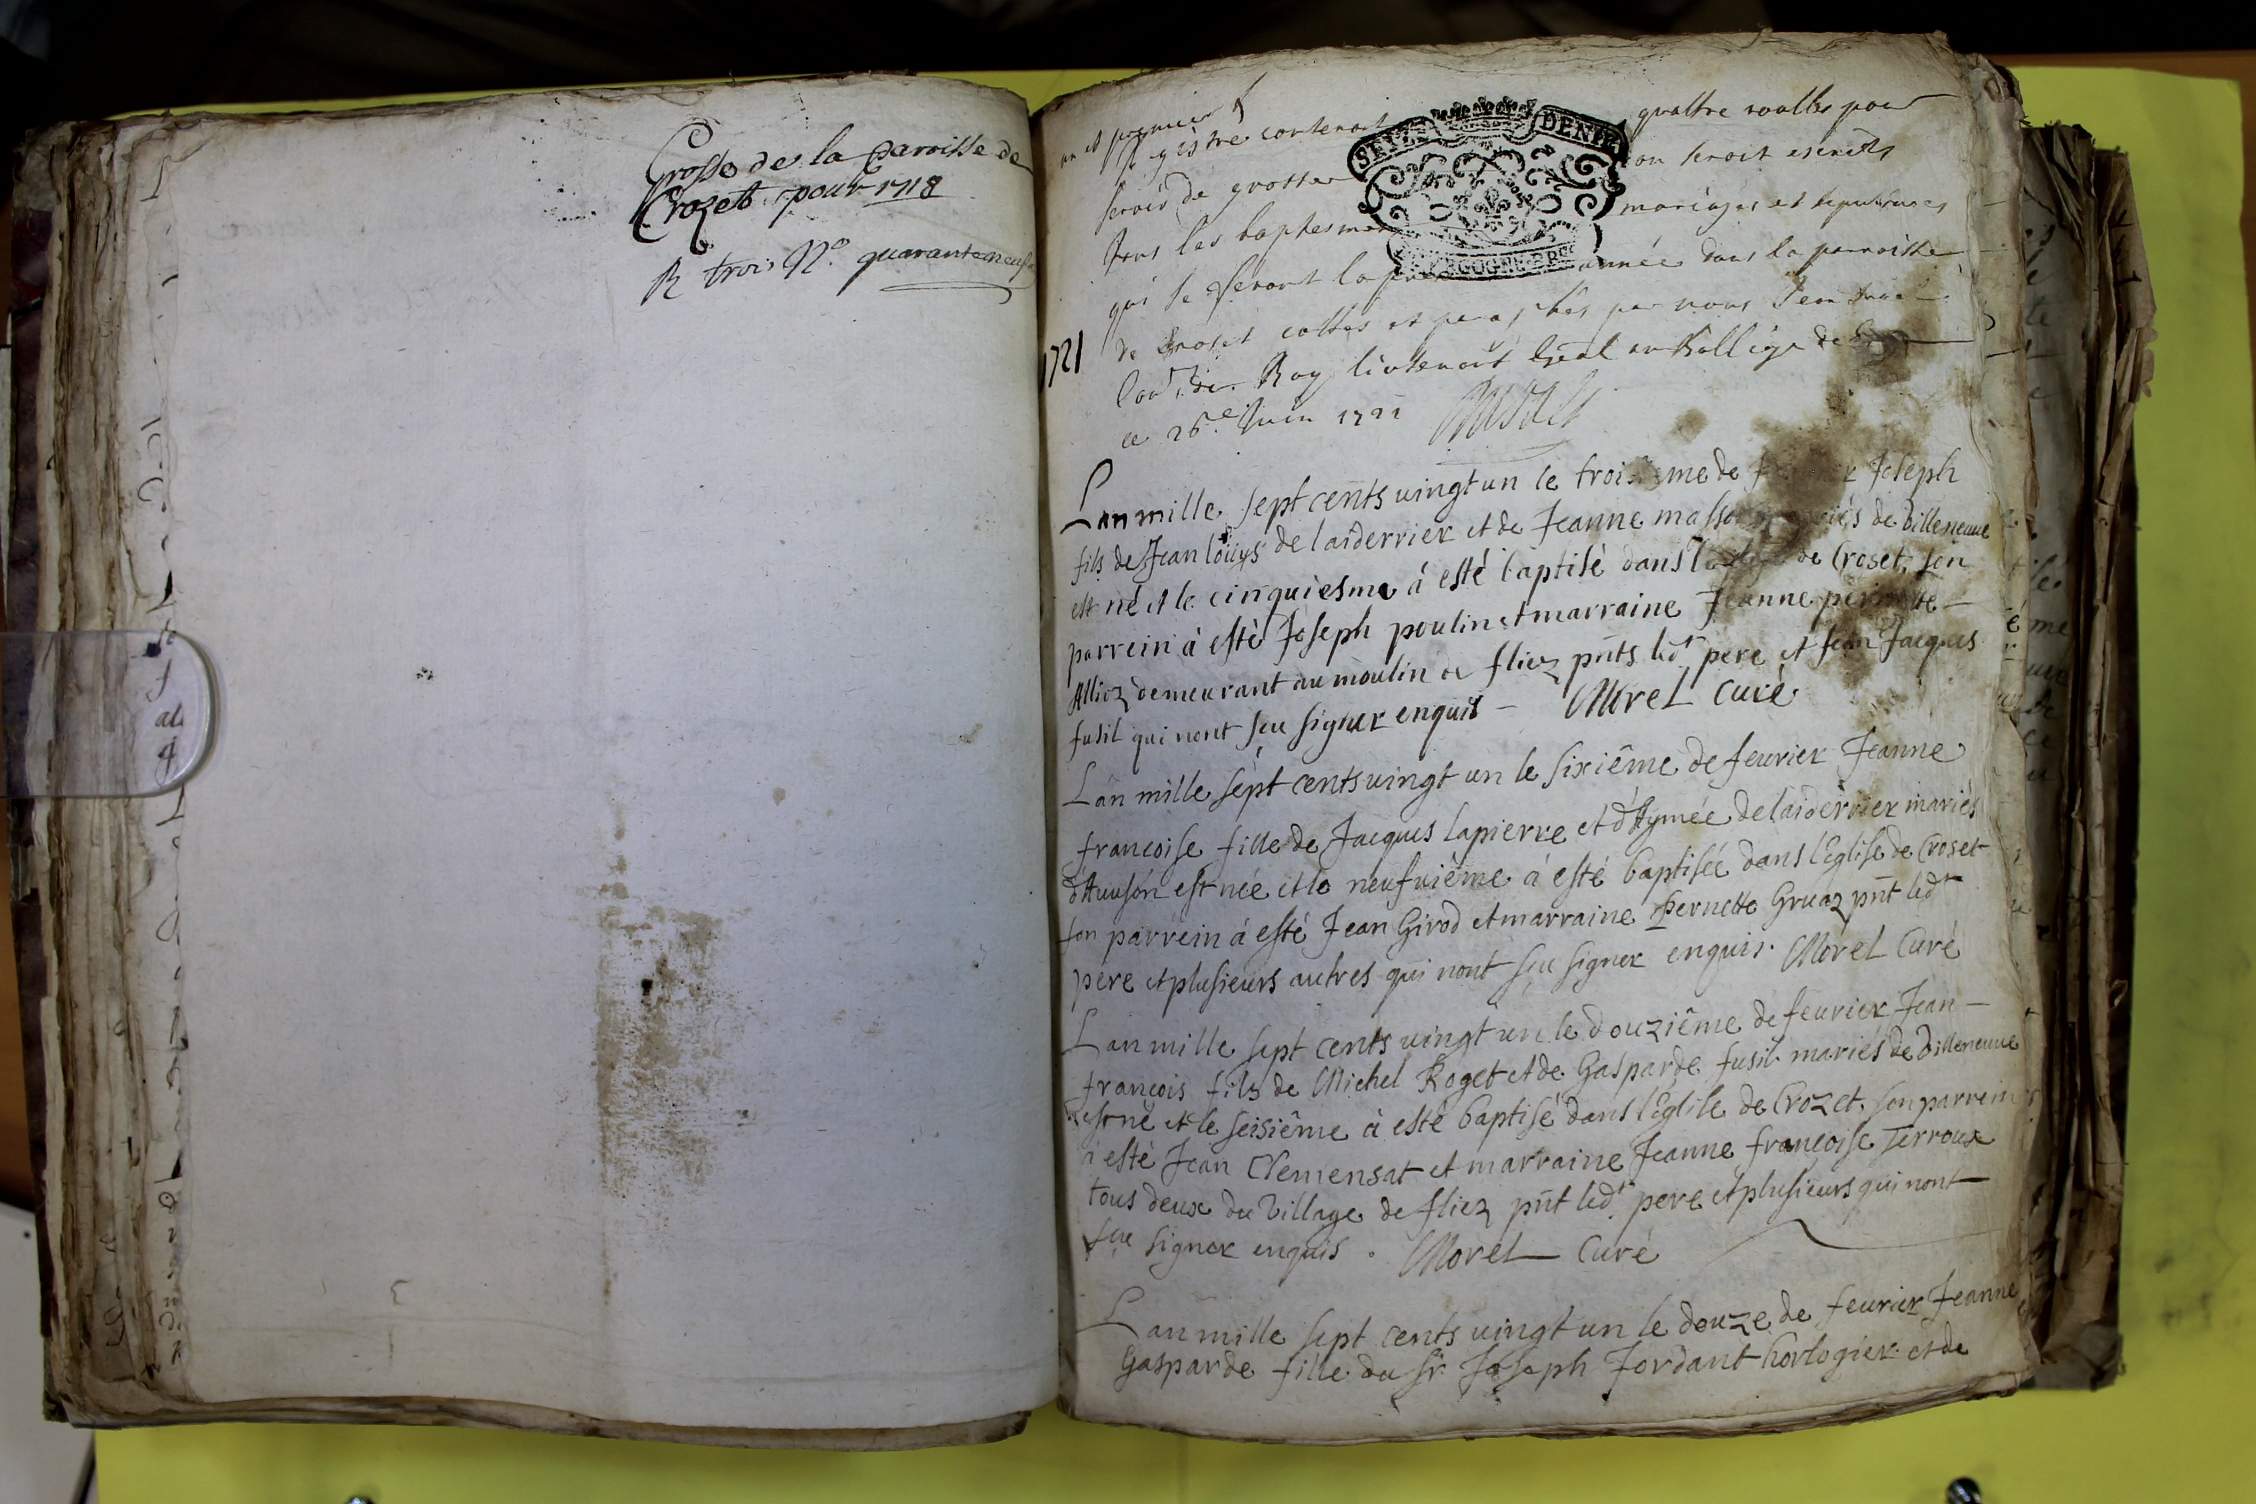 Grosse de la paroisse de
Crozet pour 1718
R trois N.º quaranteneuf
un et premier
Registre contenant quattre roolles pour
servir de grosse ou seroit escrits
tous les baptesmes mariages et sepultures
qui se feront la année dans la parroisse
de Croset cottes et paraphés par nous Jean
du Roy lieutenant gñal au Balliage de
1721
ce 26.e Juin 1721
SEIZE DENIE
Lan mille sept cents vingt un le troisieme de Joseph
fils de Jean loüys de laiderrier et de Jeanne masson mariés de Villeneuue
est né et le cinquiesme á esté baptisé dans de Croset, son
parrein à esté Joseph poulin et marraine Jeanne perrette
Alliez demeurant au moulin de fliez pñts led.t pere et Jean Jacques
fusil qui nont sçu signer enquis Morel Curé
Lan mille sept cents vingt un le sixiême de feurier Jeanne
francoise fille de Jacques lapierre et d'Aymée de laiderrier mariés
d'Auuson est née et le neufuième á esté baptisée dans l'Eglise de Croset
son parrein á esté Jean Girod et marraine Pernette Gruaz pñt led.t
pere et plusieurs autres qui nont sçu signer enquis. Morel Curé
Lan mille sept cents vingt un le douziême de feurier Jean
françois fils de Michel Roget et de Gasparde fusil mariés de Villeneuue
est né et le seisiême à esté baptisé dans l'Eglise de Crozet, son parrein
à esté Jean Clemensat et marraine Jeanne françoise Terroux
tous deux du Village de fliez pñt led.t pere et plusieurs qui nont
sçu signer enquis. Morel Curé
Lan mille sept cents vingt un le douze de feurier Jeanne
Gasparde fille du Sr. Joseph Jordant horlogier et de